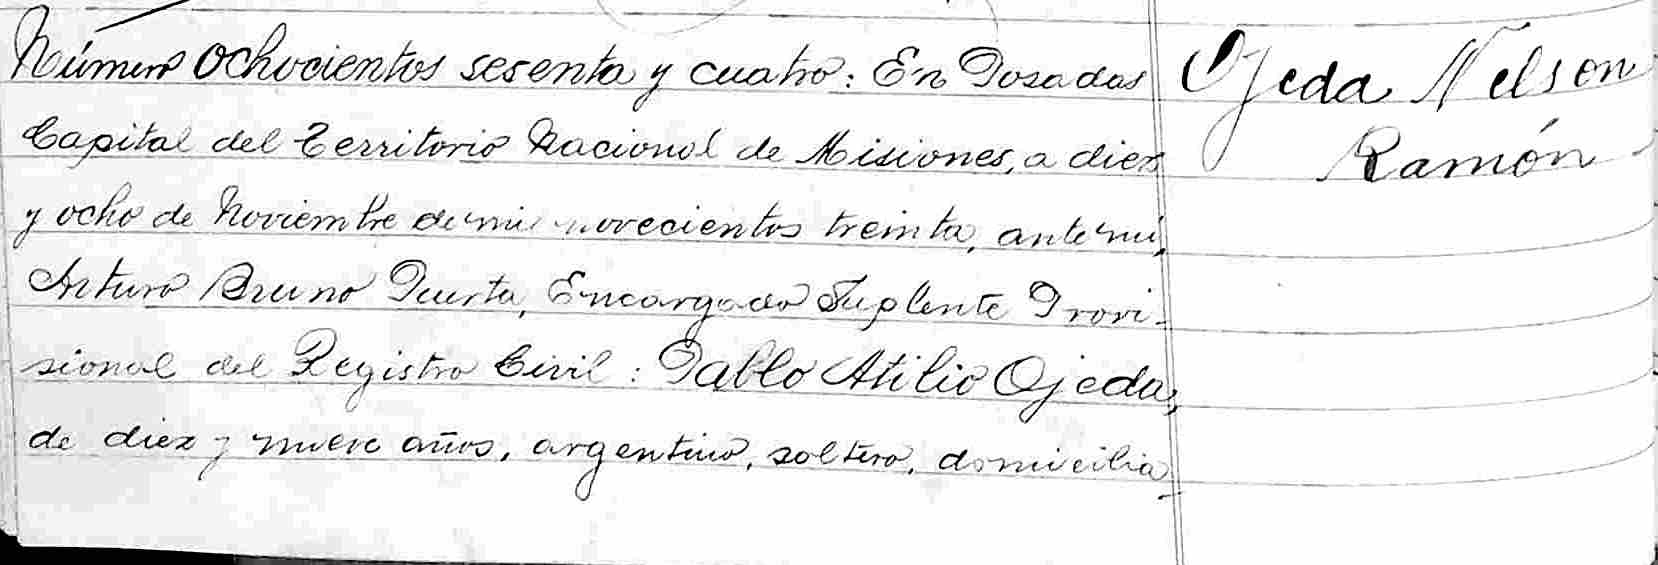 Número Ochocientos sesenta y cuatro: En Posadas
Capital del Territorio Nacional de Misiones, a diez
y ocho de Noviembre de mil novecientos treinta, ante mí,
Arturo Bruno Puerta, Encargado Suplente Provi-
sional del Registro Civil: Pablo Atilio Ojeda,
de diez y nueve años, argentino, soltero, domicilia-
Ojeda Nelson
Ramón